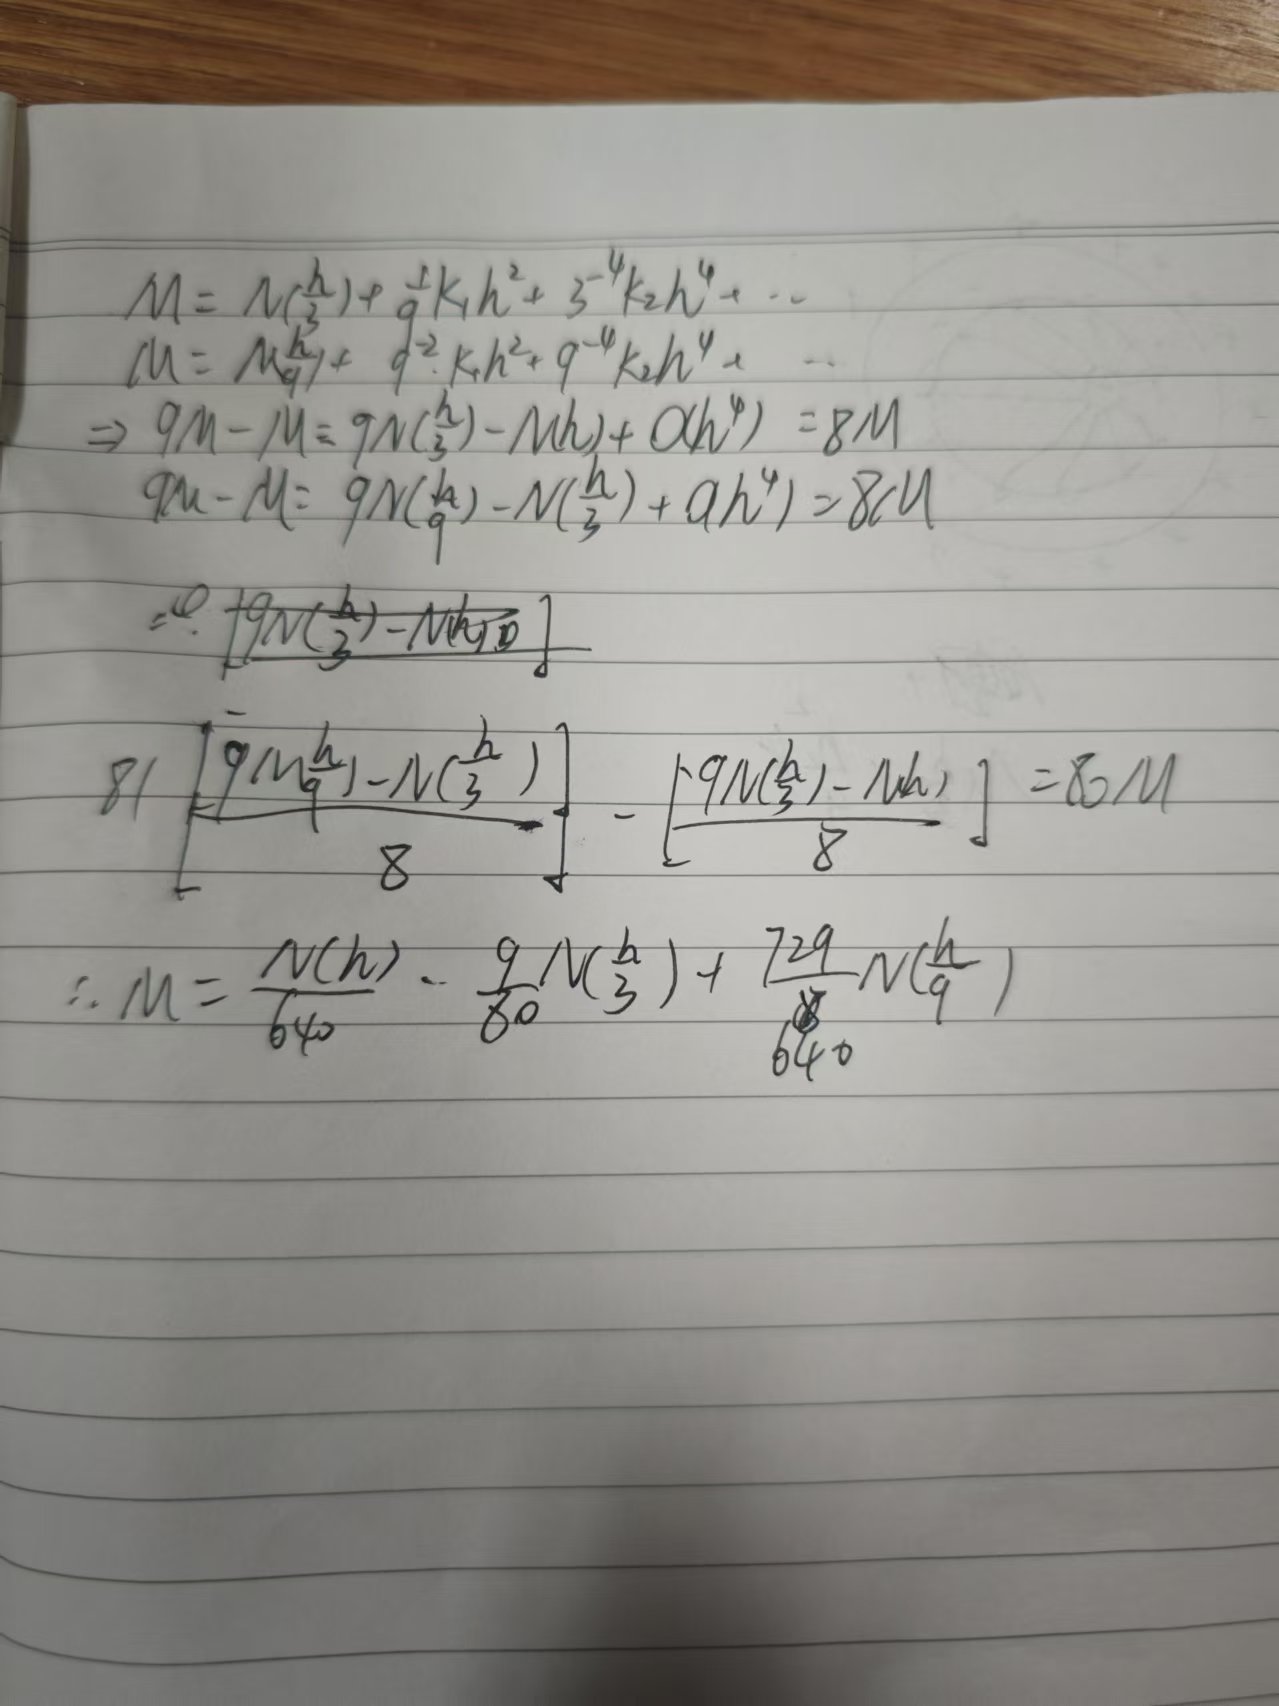 M = N(h/3) + 1/9 K₁h² + 3⁻⁴K₂h⁴ + ...
M = N(h/9) + 9⁻²·K₁h² + 9⁻⁴K₂h⁴ + ...
⇒ 9M - M = 9N(h/3) - N(h) + O(h⁴) = 8M
9M - M = 9N(h/9) - N(h/3) + O(h⁴) = 8M
[9N(h/3) - N(h)]
81 [(9N(h/9) - N(h/3))/8] - [(9N(h/3) - N(h))/8] = 80M
∴ M = N(h)/640 - 9/80 N(h/3) + 729/640 N(h/9)